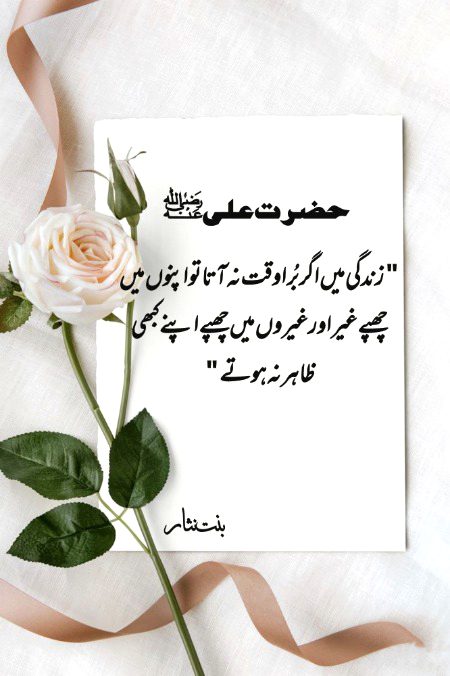 حضرت علی رضی اللہ عنہ
"زندگی میں اگر بُرا وقت نہ آتا تو اپنوں میں
چھپے غیر اور غیروں میں چھپے اپنے کبھی
ظاہر نہ ہوتے"
بنت نثار